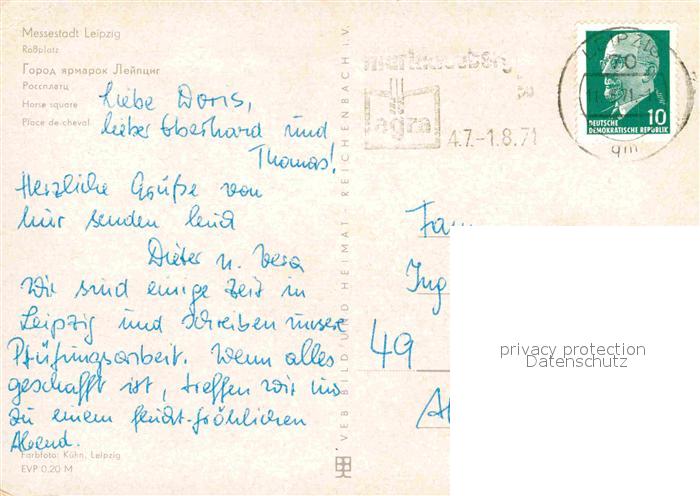 Messestadt Leipzig
Roßplatz
Город ярмарок Лейпциг
Россплатц
Horse square
Place de cheval
Liebe Doris,
lieber Eberhard und
Thomas!
Herzliche Grüße von
hier senden Euch
Dieter u. Vera
Wir sind einige Zeit in
Leipzig und schreiben unsere
Prüfungsarbeit. Wenn alles
geschafft ist, treffen wir uns
zu einem feucht-fröhlichen
Abend.
Farbfoto: Kühn, Leipzig
EVP 0,20 M
VEB BILD UND HEIMAT REICHENBACH i. V.
markkleeberg
agra
4.7.-1.8.71
LEIPZIG
DEUTSCHE
DEMOKRATISCHE REPUBLIK
10
Fam
Ing
49
privacy protection
Datenschutz